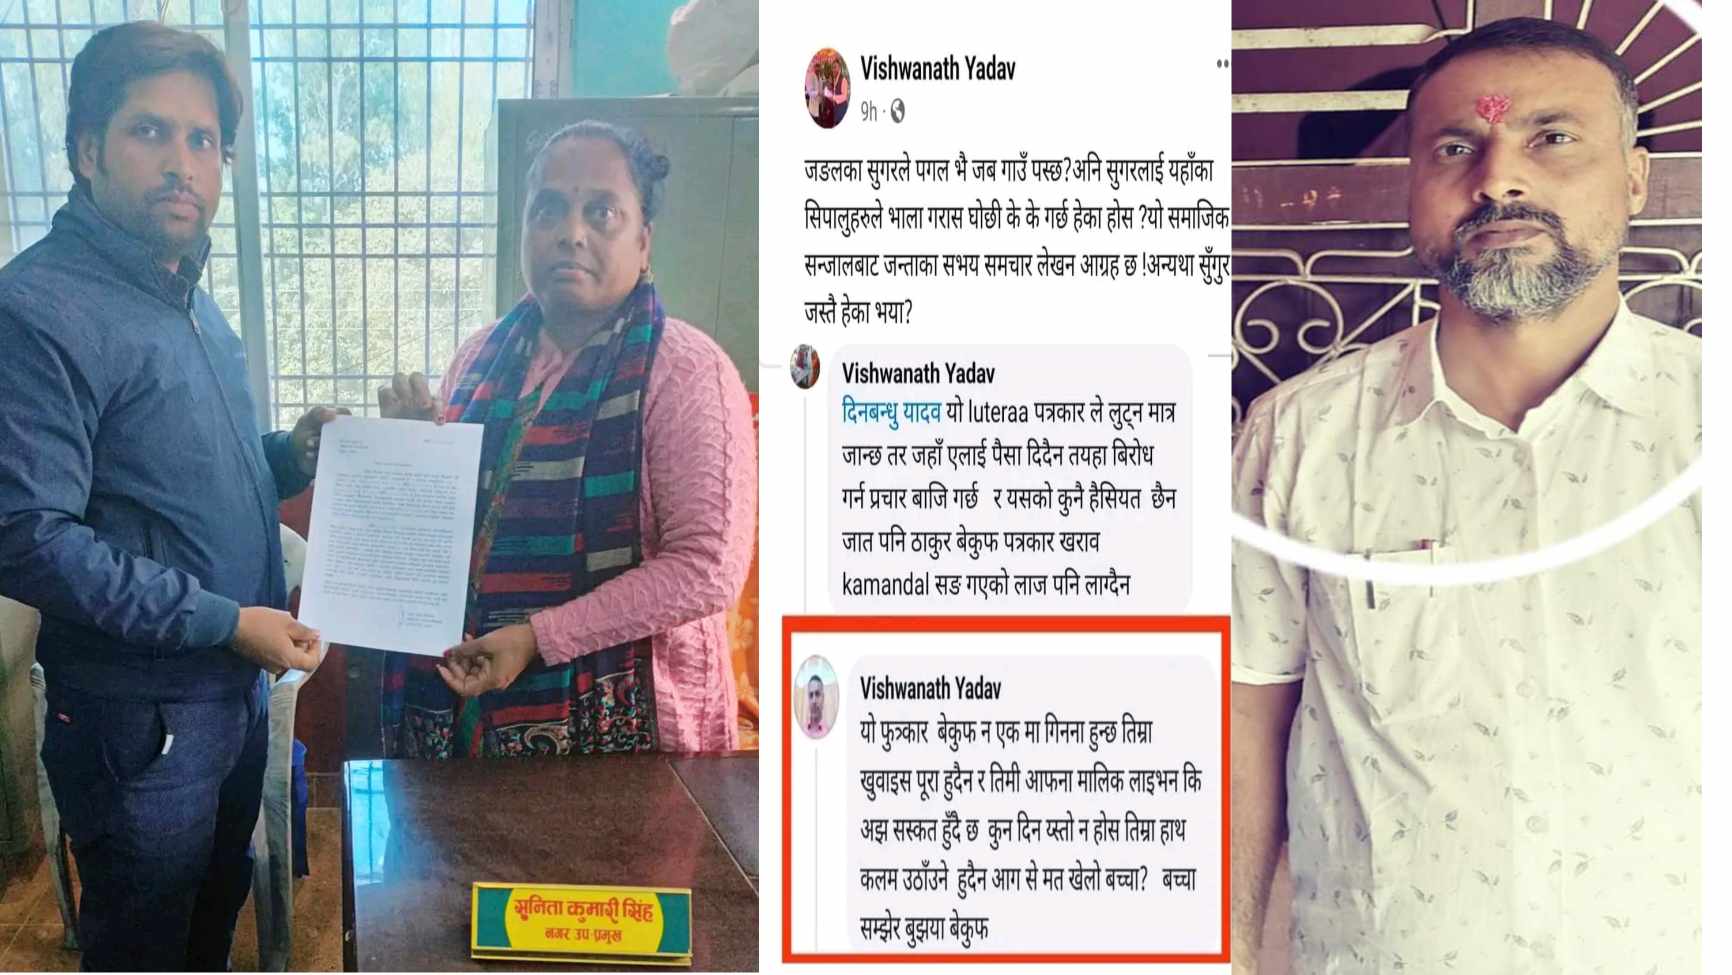 Vishwanath Yadav
9h
जङलका सुगरले पगल भै जब गाउँ पस्छ?अनि सुगरलाई यहाँका
सिपालुहरुले भाला गरास घोछी के के गर्छ हेका होस ?यो समाजिक
सन्जालबाट जन्ताका सभय समचार लेखन आग्रह छ !अन्यथा सुँगुर
जस्तै हेका भया?
Vishwanath Yadav
दिनबन्धु यादव यो luteraa पत्रकार ले लुट्न मात्र
जान्छ तर जहाँ एलाई पैसा दिदैन तयहा बिरोध
गर्न प्रचार बाजि गर्छ र यसको कुनै हैसियत छैन
जात पनि ठाकुर बेकुफ पत्रकार खराव
kamandal सङ गएको लाज पनि लाग्दैन
Vishwanath Yadav
यो फुत्र्कार बेकुफ न एक मा गिनना हुन्छ तिम्रा
खुवाइस पूरा हुदैन र तिमी आफना मालिक लाइभन कि
अझ सस्कत हुँदै छ कुन दिन य्स्तो न होस तिम्रा हाथ
कलम उठाँउने हुदैन आग से मत खेलो बच्चा? बच्चा
सम्झेर बुझया बेकुफ
सुनिता कुमारी सिंह
नगर उप-प्रमुख